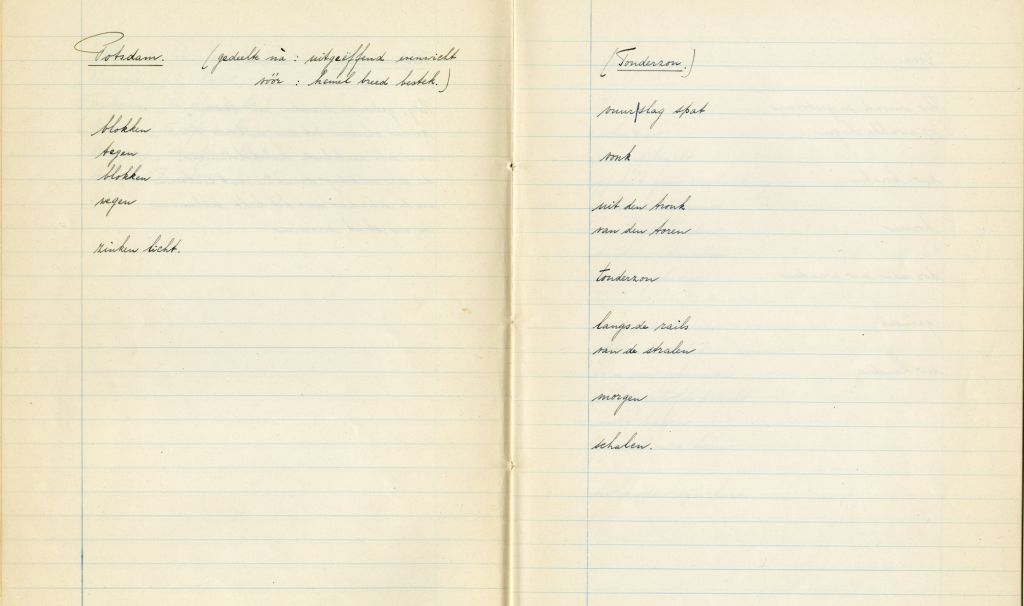 Potsdam. (gedeelte nà: uitgeëffend evenwicht
vóór: hemel breed bestek.)
blokken
tegen
blokken
wegen
zinken licht.
(Tonderzon.)
vuur/slag spat
vonk
uit den tronk
van den toren
tonderzon
langs de rails
van de stralen
morgen
schalen.